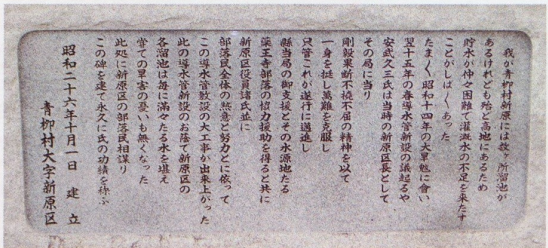 我が青柳村新原には数ヶ所溜池が
あるけれども殆ど高地にあるため
貯水が仲々困難で灌漑水の不足を来たす
ことがしばしばあった
たまたま昭和十四年の大旱魃に會い
翌十五年の春導水管新設の議起るや
安武久三氏は当時の新原区長として
その局に当り
剛毅果断不撓不屈の精神を以て
一身を挺し萬難を克服し
只管これが遂行に邁進し
縣当局の御支援とその水源地たる
薬王寺部落の協力援助を得ると共に
新原区役員諸氏並に
部落民全体の熱意と努力とに依って
この導水管敷設の大工事が出来上がった
此の導水管新設のお蔭で新原区の
各溜池は毎に満々たる水を堪え
嘗ての旱害の憂いも無くなった
此処に新原区の部落民相謀り
この碑を建て永久に氏の功績を称ふ
昭和二十六年十月一日 建立
青柳村大字新原区